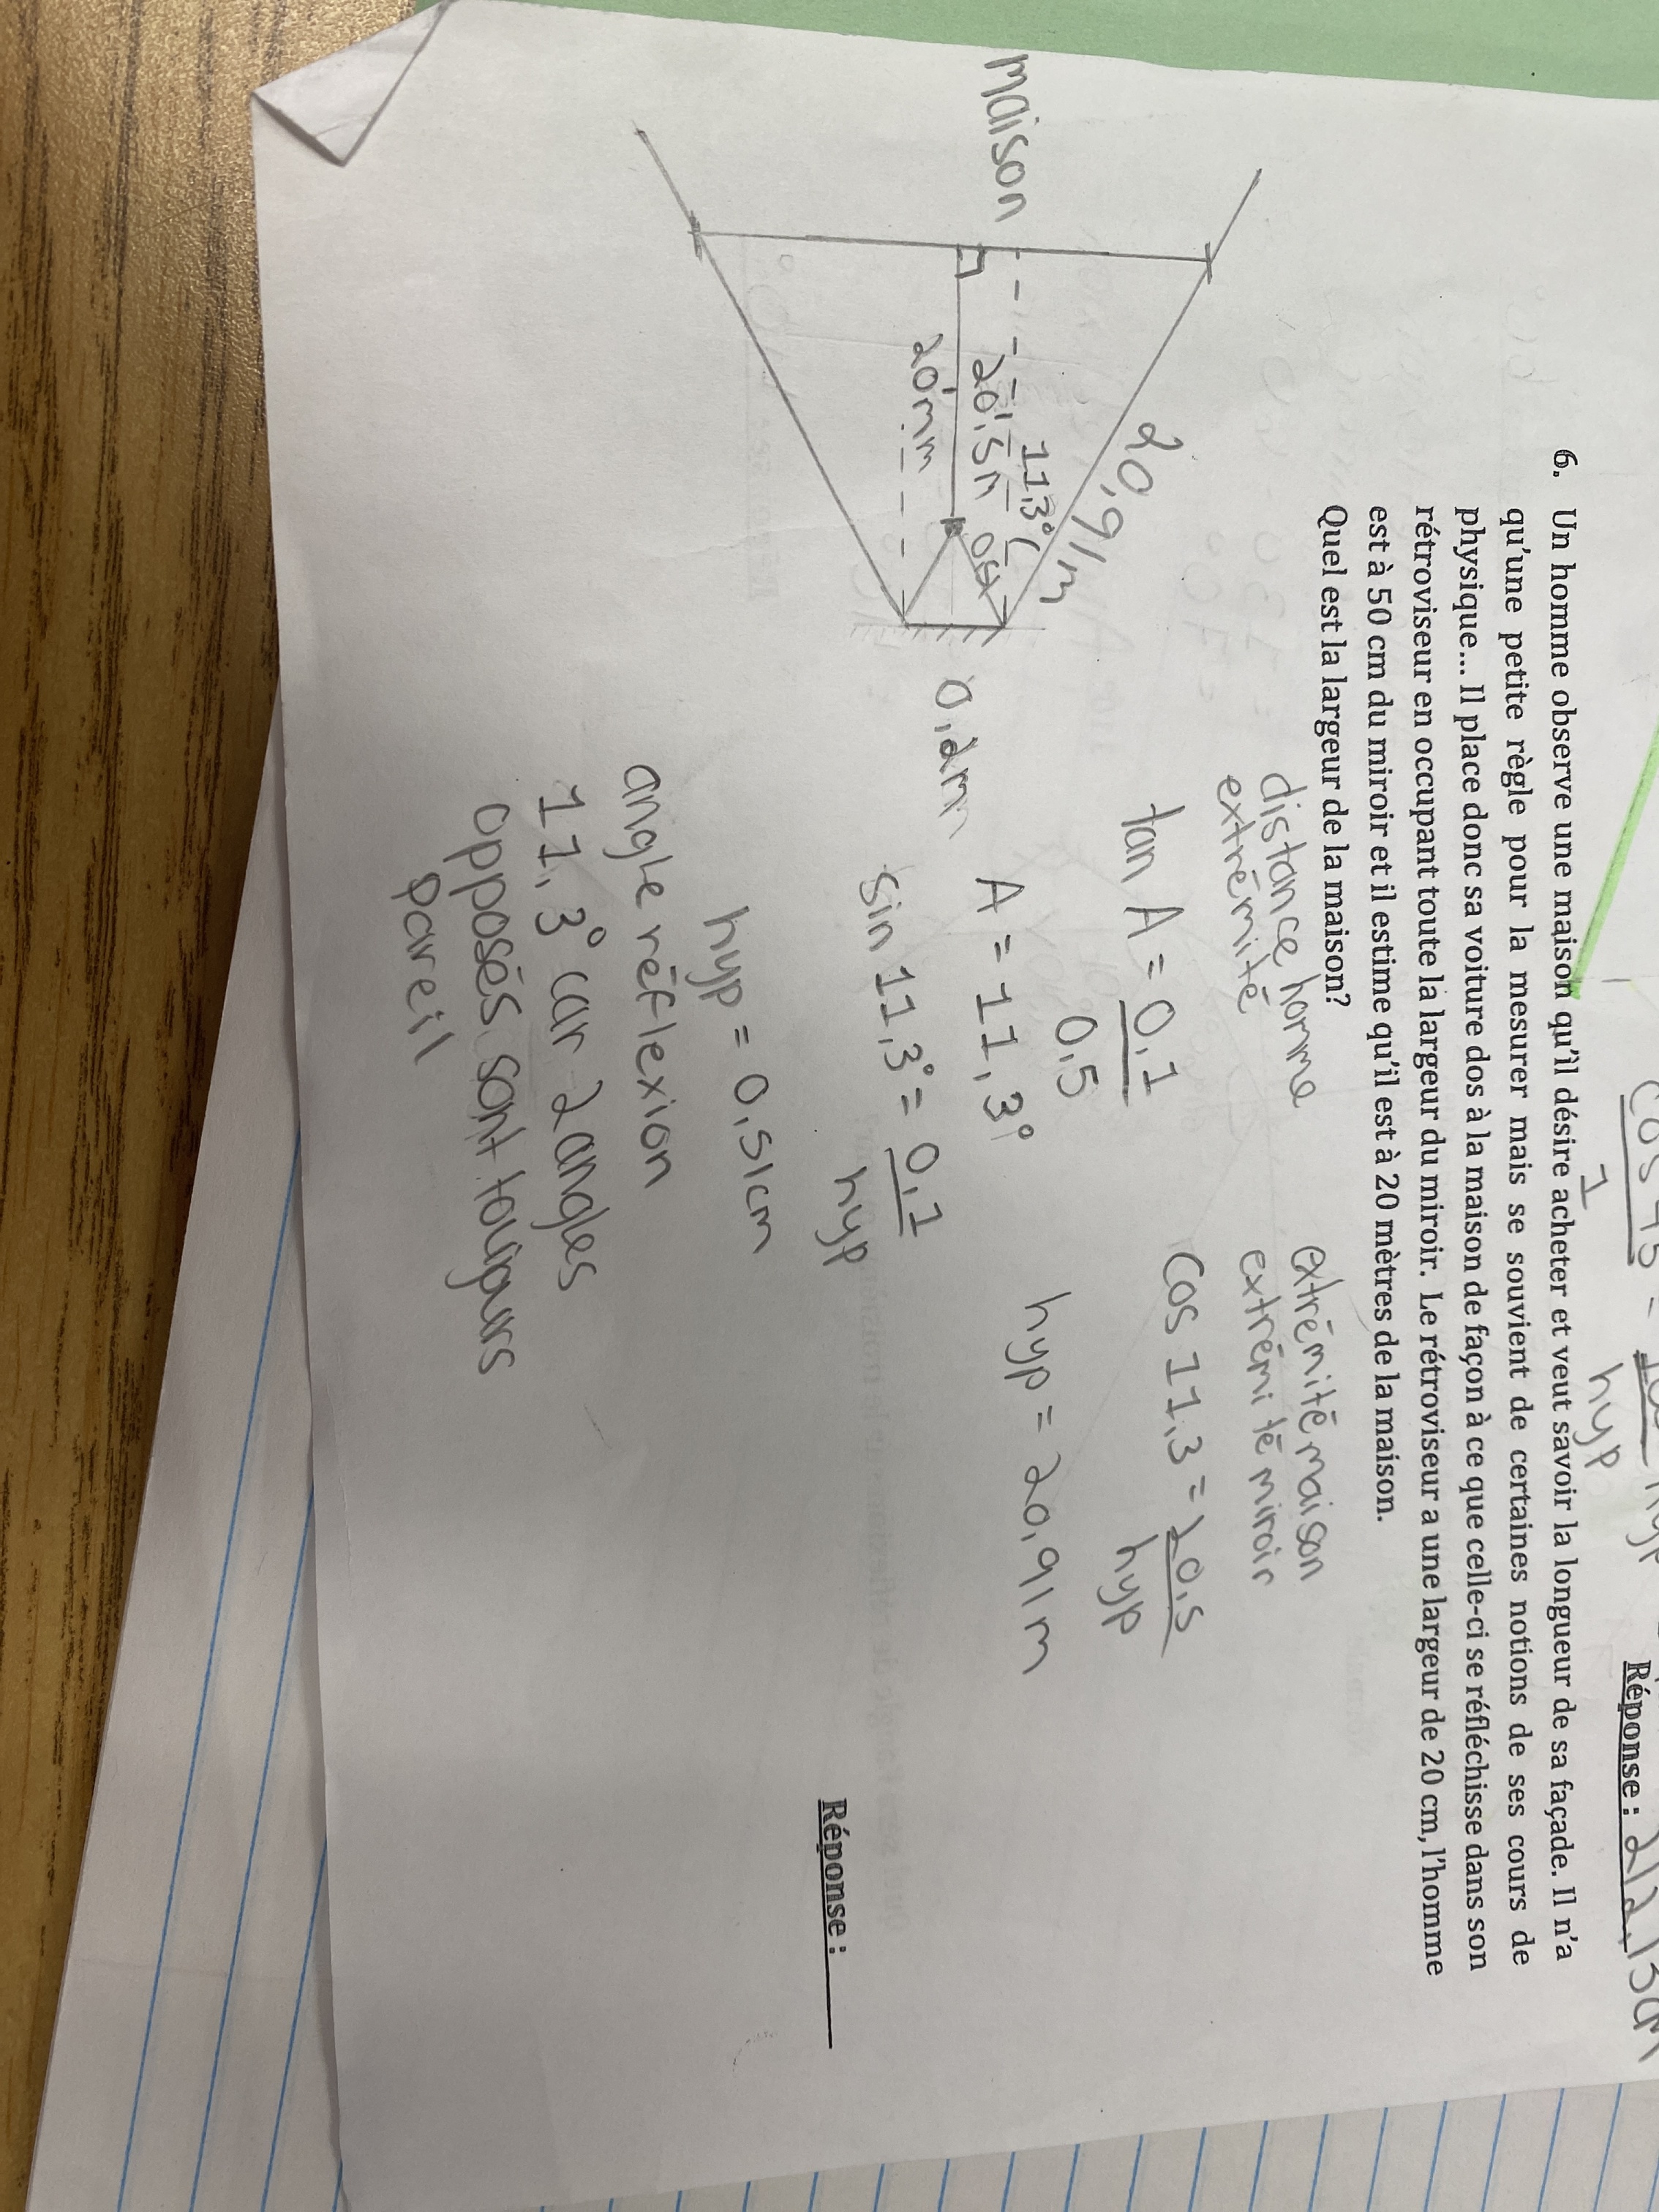 cos 45 =
1
hyp
Réponse :
6. Un homme observe une maison qu'il désire acheter et veut savoir la longueur de sa façade. Il n'a
qu'une petite règle pour la mesurer mais se souvient de certaines notions de ses cours de
physique... Il place donc sa voiture dos à la maison de façon à ce que celle-ci se réfléchisse dans son
rétroviseur en occupant toute la largeur du miroir. Le rétroviseur a une largeur de 20 cm, l'homme
est à 50 cm du miroir et il estime qu'il est à 20 mètres de la maison.
Quel est la largeur de la maison?
distance homme
extrémité
tan A = 0,1
0,5
A = 11,3°
sin 11,3° = 0,1
hyp
hyp = 0,51cm
angle réflexion
11,3° car 2 angles
opposés sont toujours
pareil
extrémité maison
extrémité miroir
cos 11,3 = 20,5
hyp
hyp = 20,91m
maison
20,91m
11,3°
20,5m
20m
0,2m
Réponse :